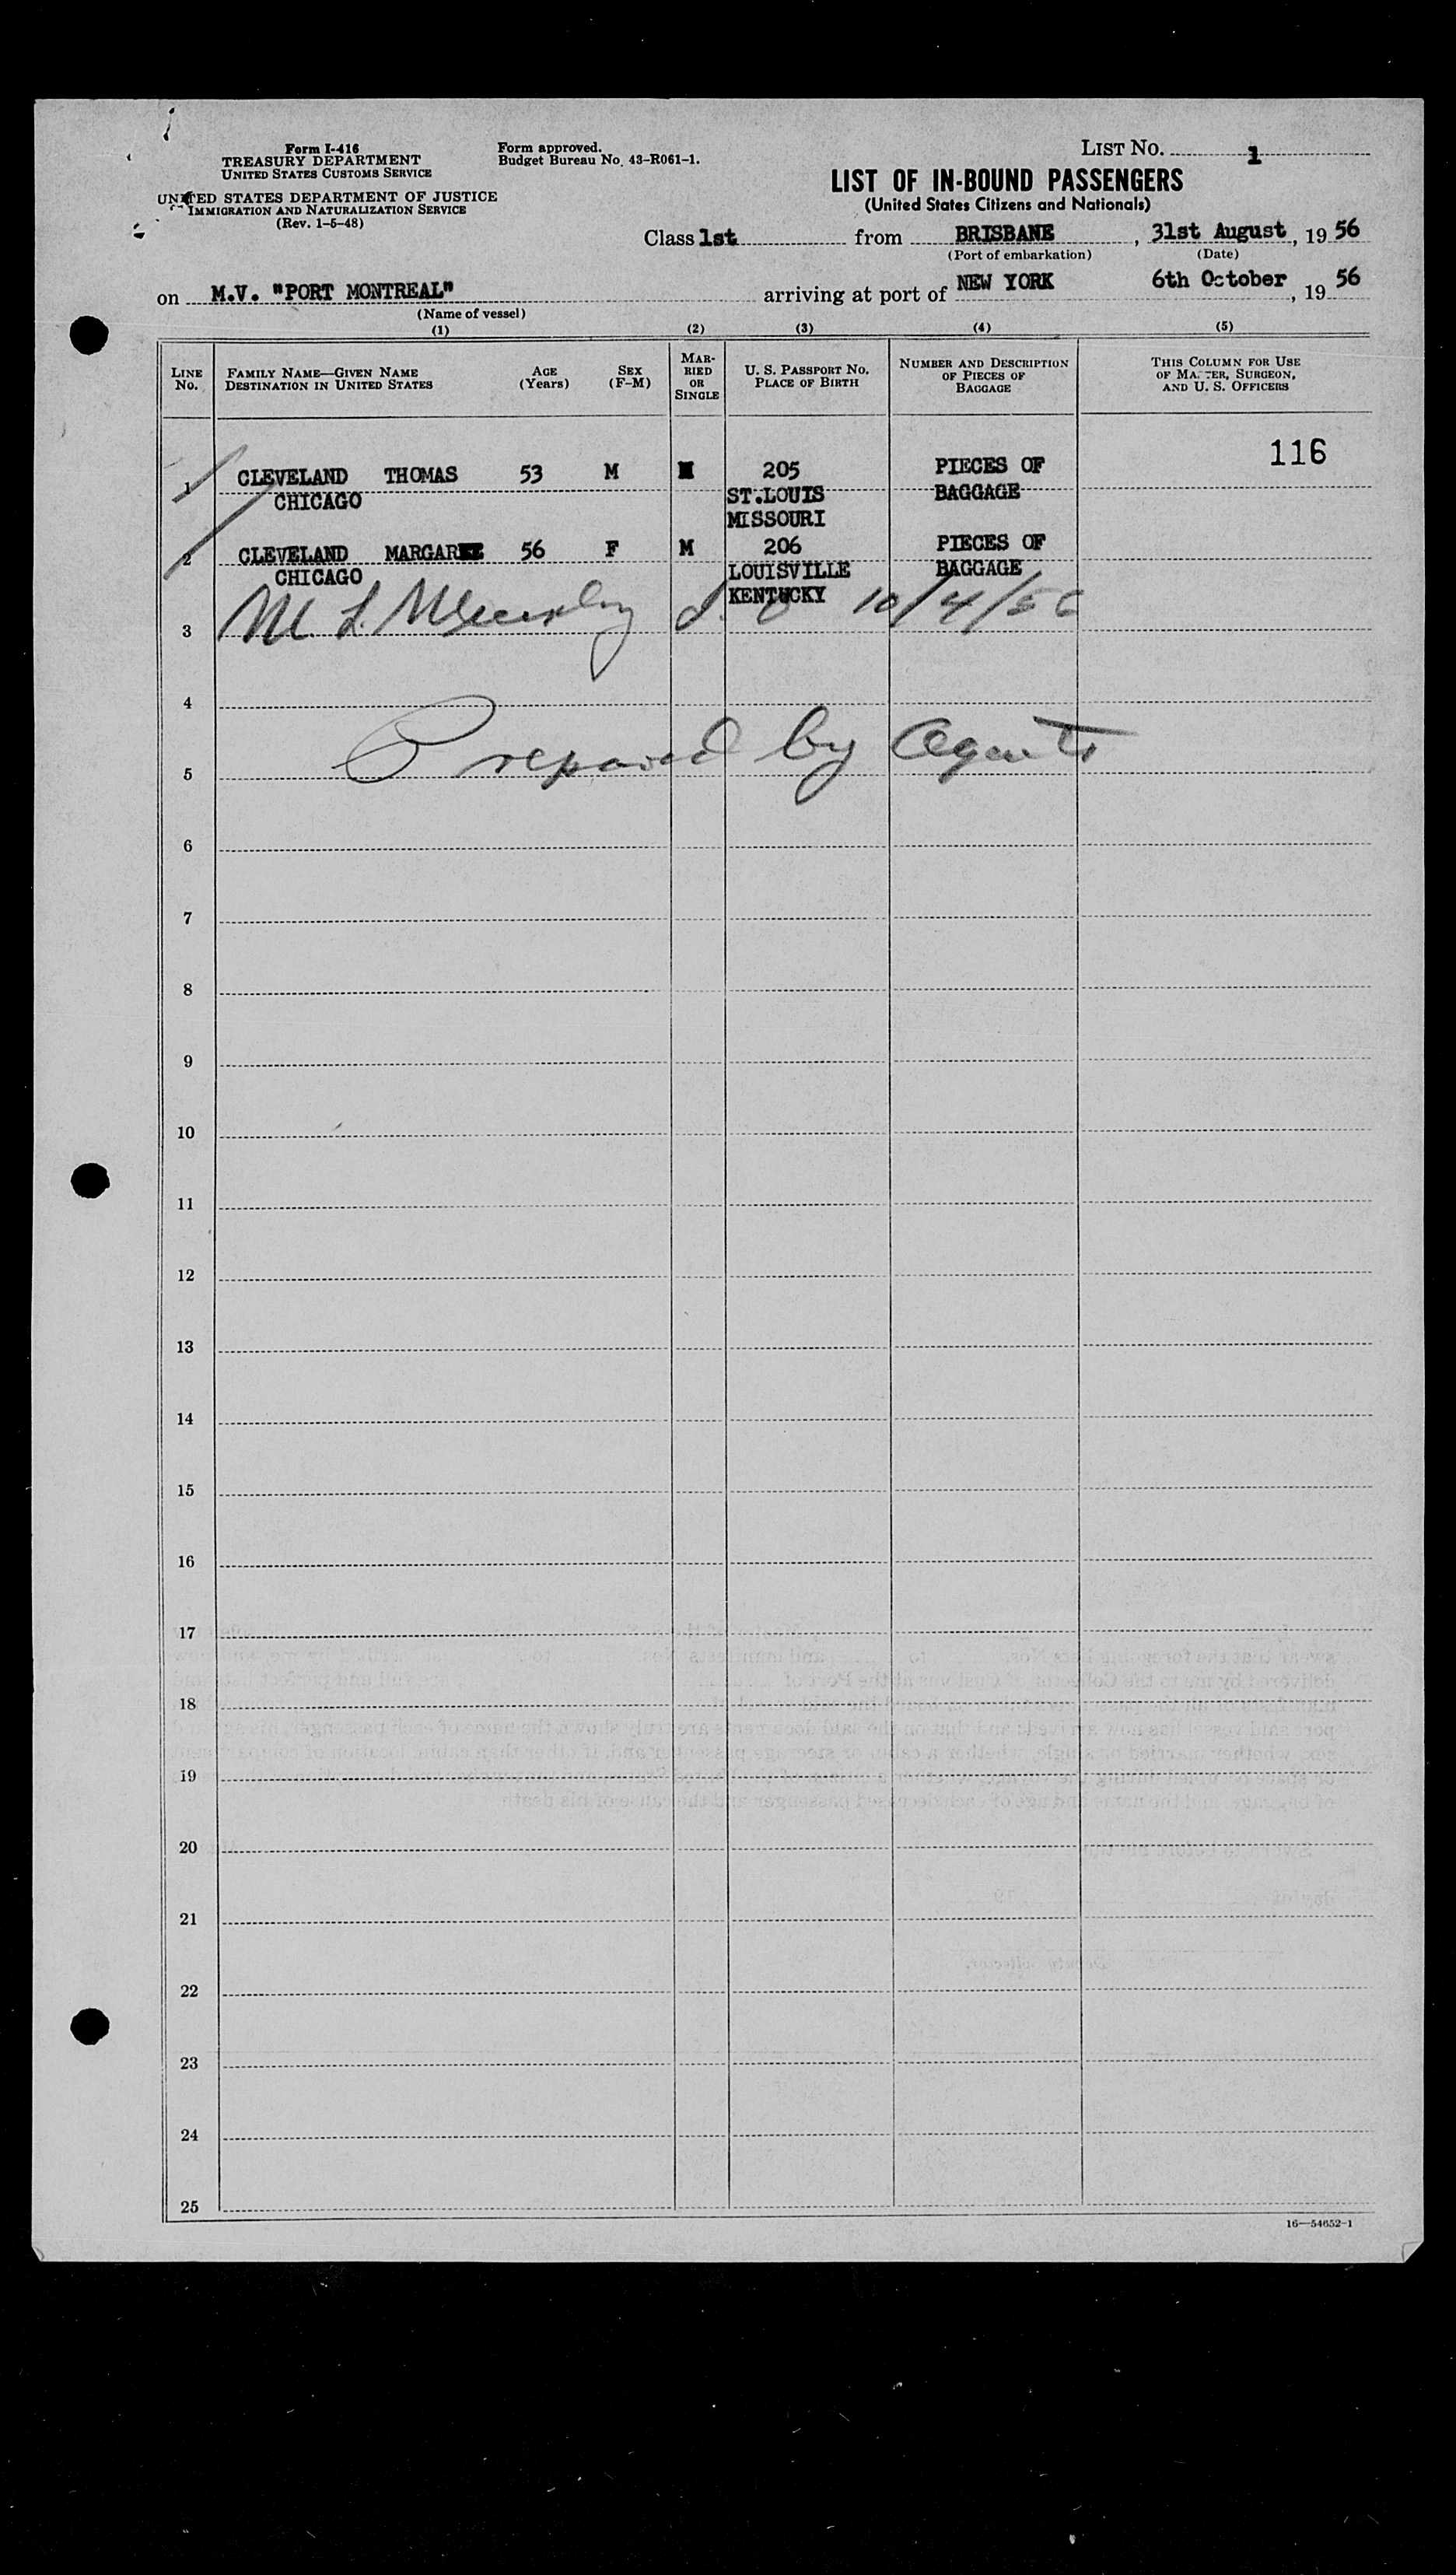 Form I-416
TREASURY DEPARTMENT
UNITED STATES CUSTOMS SERVICE
UNITED STATES DEPARTMENT OF JUSTICE
IMMIGRATION AND NATURALIZATION SERVICE
(Rev. 1-5-48)
Form approved.
Budget Bureau No. 43-R061-1.
LIST No. 1
LIST OF IN-BOUND PASSENGERS
(United States Citizens and Nationals)
Class 1st from BRISBANE, 31st August, 19 56
(Port of embarkation) (Date)
on M.V. "PORT MONTREAL" arriving at port of NEW YORK 6th October, 19 56
(Name of vessel)
(1) (2) (3) (4) (5)
LINE No.
FAMILY NAME—GIVEN NAME
DESTINATION IN UNITED STATES
AGE (Years)
SEX (F-M)
MAR-
RIED
OR
SINGLE
U. S. PASSPORT No.
PLACE OF BIRTH
NUMBER AND DESCRIPTION
OF PIECES OF
BAGGAGE
THIS COLUMN FOR USE
OF MASTER, SURGEON,
AND U. S. OFFICERS
116
1 CLEVELAND THOMAS 53 M M 205 PIECES OF
CHICAGO ST.LOUIS BAGGAGE
MISSOURI
2 CLEVELAND MARGARET 56 F M 206 PIECES OF
CHICAGO LOUISVILLE BAGGAGE
KENTUCKY
3 M. L. 10/4/56
4
Prepared by Agents
5
6
7
8
9
10
11
12
13
14
15
16
17
18
19
20
21
22
23
24
25
16—54652-1